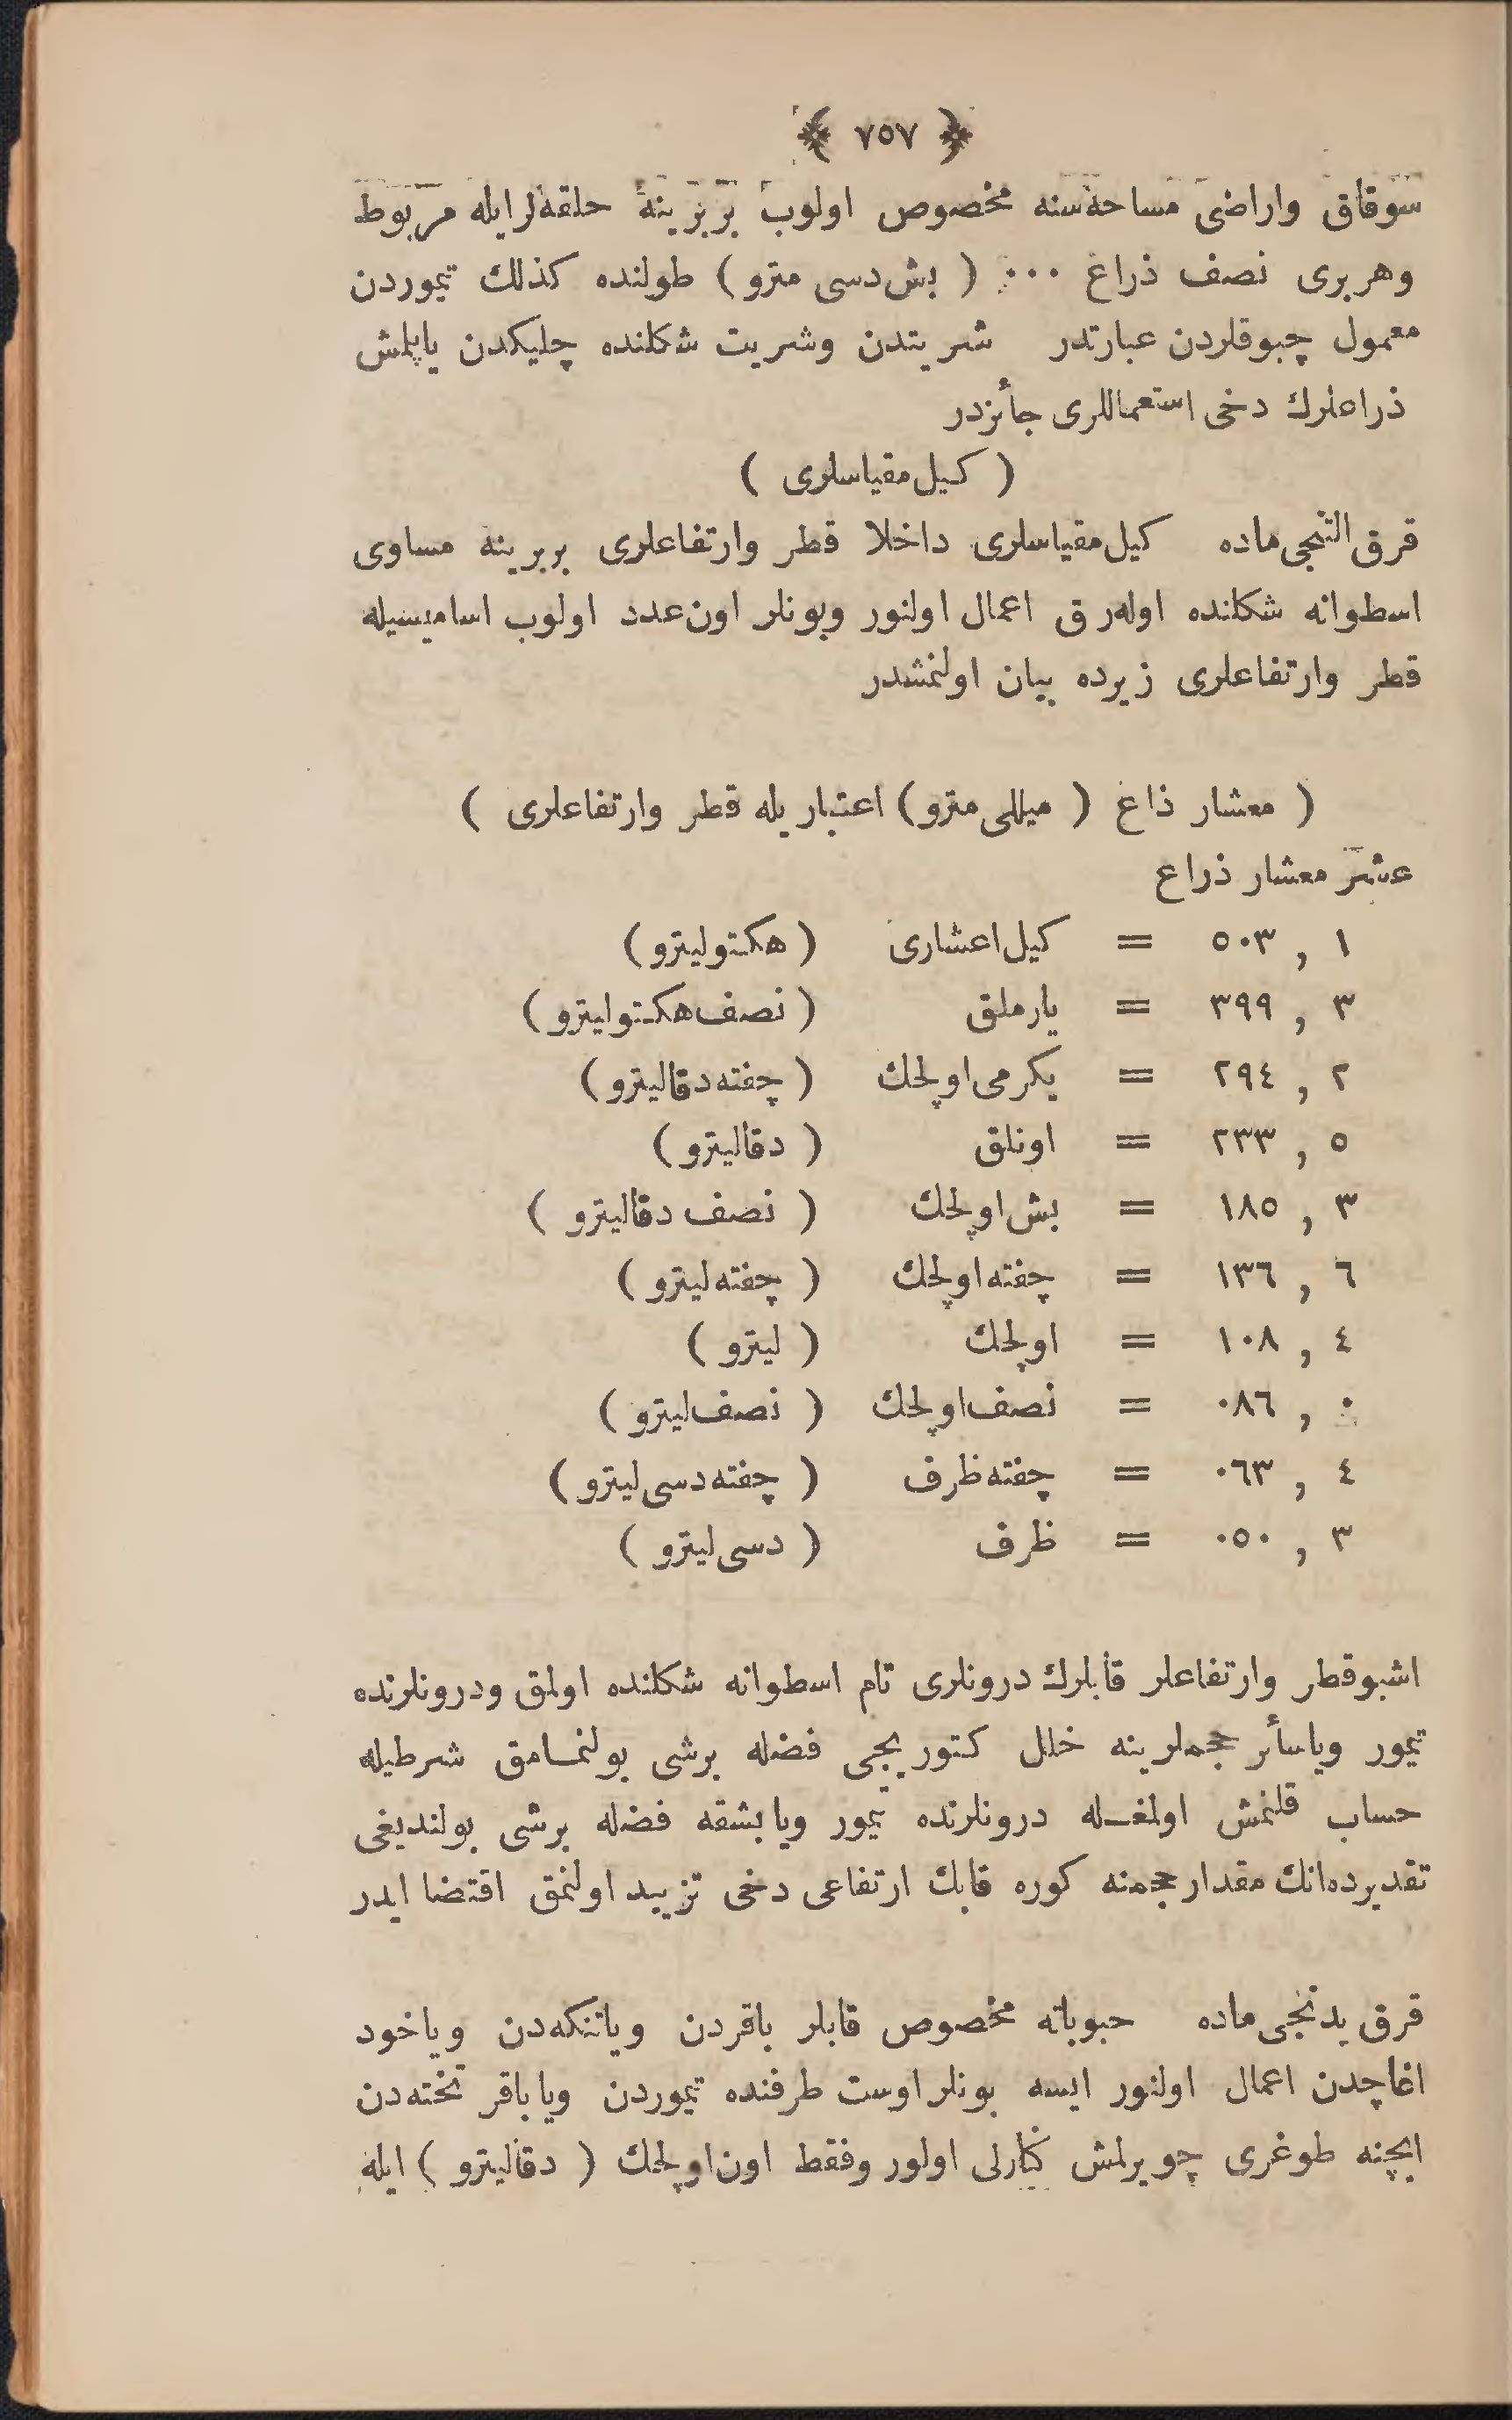 ﴿ ٧٥٧ ﴾
سوقاق واراضی مساحه‌سنه مخصوص اولوب بربرینه حلقه‌لر ایله مربوط
وهربری نصف ذراع ... ( بش دسی مترو ) طولنده کذلك تیموردن
معمول چبوقلردن عبارتدر شریتدن وشریت شکلنده چلیکدن یاپلمش
ذراعلرك دخی استعماللری جأئزدر
( کیل مقیاسلری )
قرق التنجی ماده کیل مقیاسلری داخلا قطر وارتفاعلری بربرینه مساوی
اسطوانه شکلنده اوله‌رق اعمال اولنور وبونلر اون عدد اولوب اسامیسیله
قطر وارتفاعلری زیرده بیان اولنمشدر
( معشار ذاغ ( میللی مترو ) اعتباریله قطر وارتفاعلری )
عشر معشار ذراع
١ , ٥٠٣ = کیل اعشاری ( هکتولیترو )
٣ , ٣٩٩ = یارملق ( نصف هکتولیترو )
٢ , ٢٩٤ = یکرمی اولچك ( چفته دقالیترو )
٥ , ٢٣٣ = اونلق ( دقالیترو )
٣ , ١٨٥ = بش اولچك ( نصف دقالیترو )
٦ , ١٣٦ = چفته اولچك ( چفته لیترو )
٤ , ١٠٨ = اولچك ( لیترو )
٠ , ٠٨٦ = نصف اولچك ( نصف لیترو )
٤ , ٠٦٣ = چفته ظرف ( چفته دسی لیترو )
٣ , ٠٥٠ = ظرف ( دسی لیترو )
اشبو قطر وارتفاعلر قابلرك درونلری تام اسطوانه شکلنده اولمق ودرونلرنده
تیمور ویا سأئر حجملرینه خلل کتوریجی فضله برشی بولنمامق شرطیله
حساب قلنمش اولمغله درونلرنده تیمور ویا بشقه فضله برشی بولندیغی
تقدیرده انك مقدار حجمنه کوره قابك ارتفاعی دخی تزیید اولنمق اقتضا ایدر
قرق یدنجی ماده حبوباته مخصوص قابلر باقردن ویا تنکه‌دن ویاخود
اغاجدن اعمال اولنور ایسه بونلر اوست طرفنده تیموردن ویا باقر تخته‌دن
ایچنه طوغری چویرلمش کنارلی اولور وفقط اون اولچك ( دقالیترو ) ایله